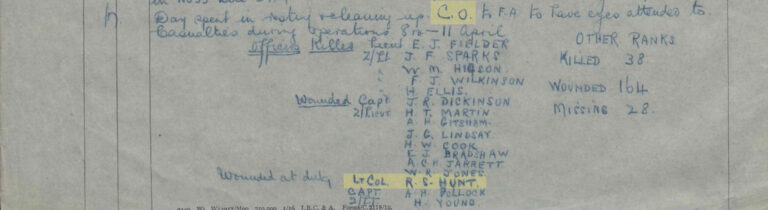 Day spent in resting & cleaning up C.O. to F.A. to have eyes attended to
Casualties during operations 8th–11 April
Officers Killed Lieut E. J. FIELDER OTHER RANKS
2/Lt J. F. SPARKS KILLED 38
" W. M. HIGSON
" F. J. WILKINSON WOUNDED 164
" H. ELLIS.
Wounded Capt J. R. DICKINSON MISSING 28.
2/Lieut H. T. MARTIN
A. H. GITSHAM.
J. G. LINDSAY
H. W. COOK
E. J. BRADSHAW
A. C. H. JARRETT
W. R. JONES
Wounded at duty Lt Col. R. S. HUNT.
CAPT A. H. POLLOCK
2/LT H. YOUNG